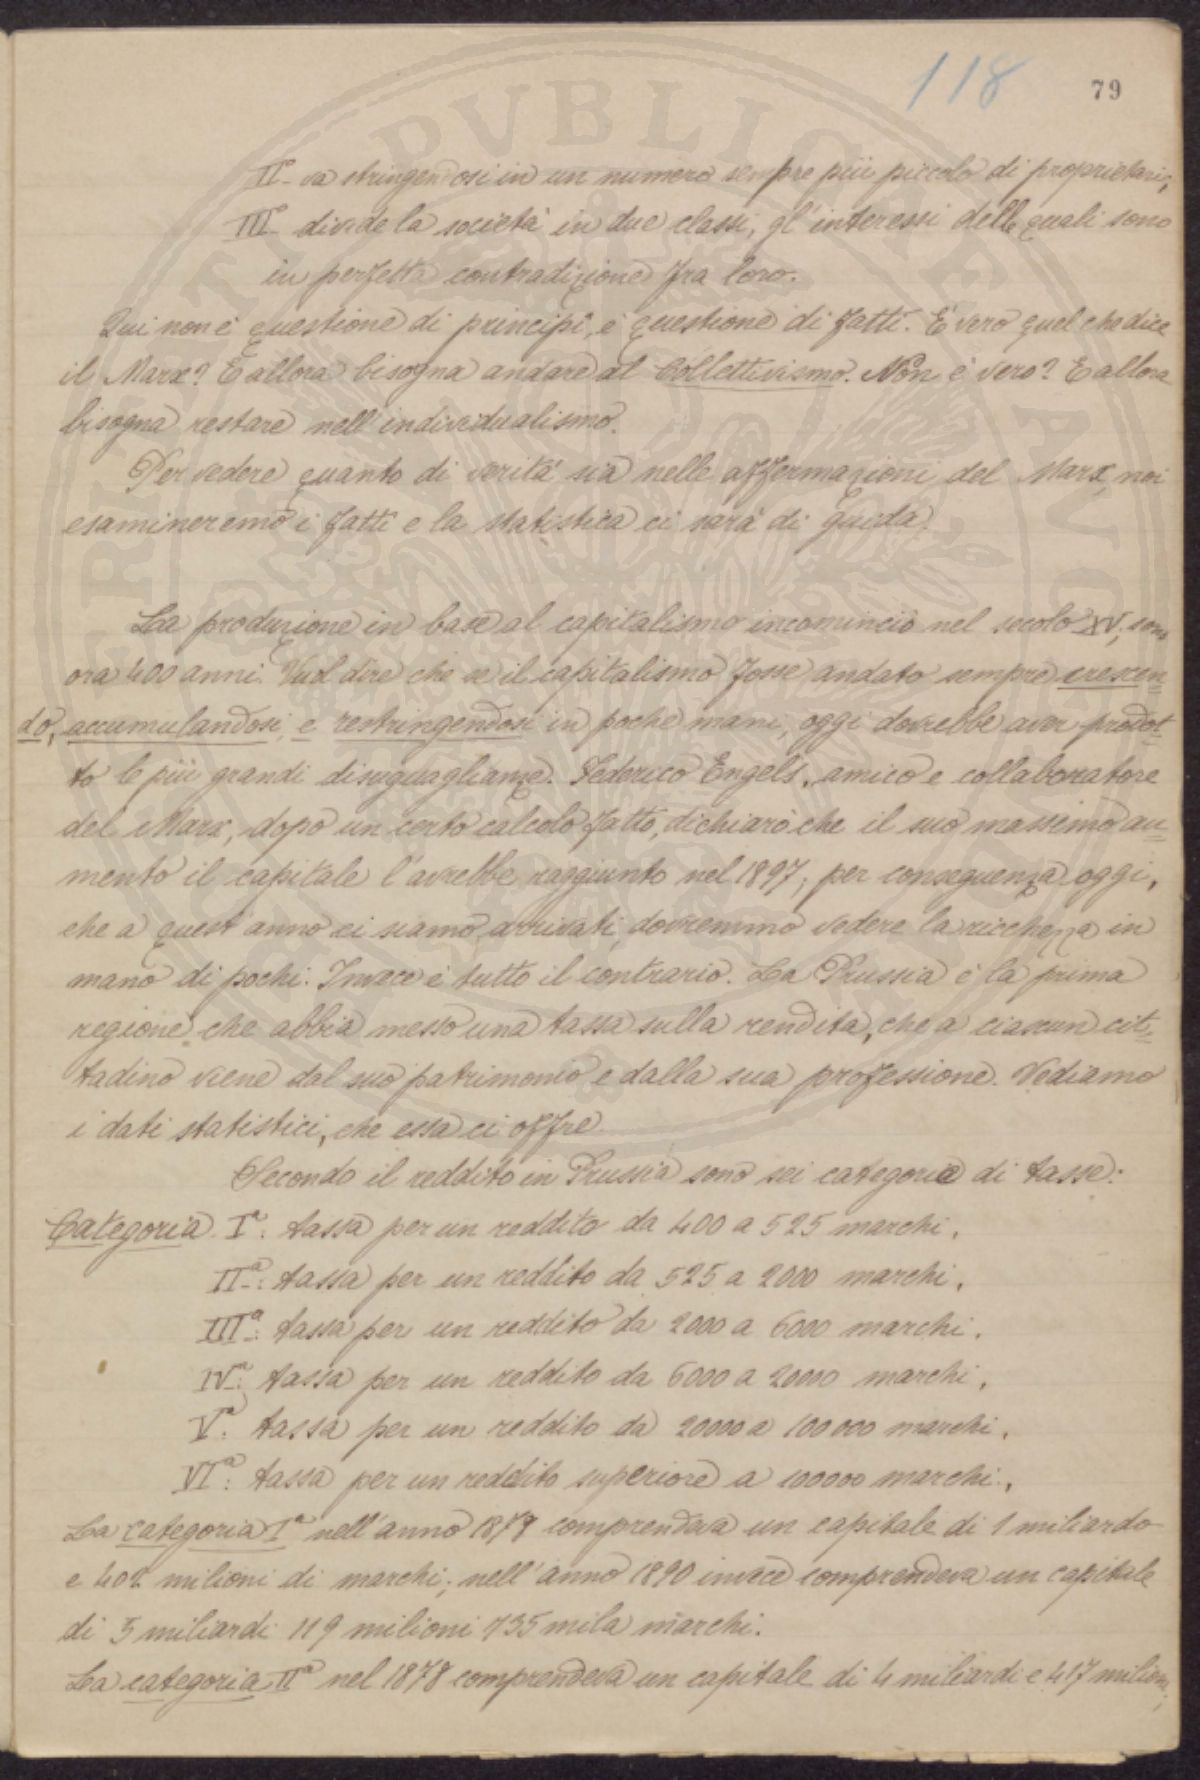 118
79
IIº va stringendosi in un numero sempre più piccolo di proprietari,
IIIº divide la società in due classi, gl'interessi delle quali sono
in perfetta contradizione fra loro.
Qui non è questione di principi, è questione di fatti. È vero quel che dice
il Marx? E allora bisogna andare al Collettivismo. Non è vero? E allora
bisogna restare nell'individualismo.
Per vedere quanto di verità sia nelle affermazioni del Marx, noi
esamineremo i fatti e la statistica ci sarà di guida.
La produzione in base al capitalismo incominciò nel secolo XV, sono
ora 400 anni. Vuol dire che se il capitalismo fosse andato sempre crescen=
do, accumulandosi, e restringendosi in poche mani, oggi dovrebbe aver prodot=
to le più grandi disuguaglianze. Federico Engels, amico e collaboratore
del Marx, dopo un certo calcolo fatto, dichiarò che il suo massimo au=
mento il capitale l'avrebbe raggiunto nel 1897; per conseguenza oggi,
che a quest'anno ci siamo arrivati, dovremmo vedere la ricchezza in
mano di pochi. Invece è tutto il contrario. La Prussia è la prima
regione che abbia messo una tassa sulla rendita, che a ciascun cit=
tadino viene dal suo patrimonio e dalla sua professione. Vediamo
i dati statistici, che essa ci offre
Secondo il reddito in Prussia sono sei categorie di tasse:
Categoria Iª: tassa per un reddito da 400 a 525 marchi,
IIª: tassa per un reddito da 525 a 2000 marchi,
IIIª: tassa per un reddito da 2000 a 6000 marchi,
IVª: tassa per un reddito da 6000 a 20000 marchi,
Vª: tassa per un reddito da 20000 a 100000 marchi,
VIª: tassa per un reddito superiore a 100000 marchi.,
La categoria Iª nell'anno 1878 comprendeva un capitale di 1 miliardo
e 402 milioni di marchi; nell'anno 1890 invece comprendeva un capitale
di 5 miliardi 119 milioni 735 mila marchi.
La categoria IIª nel 1878 comprendeva un capitale di 4 miliardi e 417 milioni;